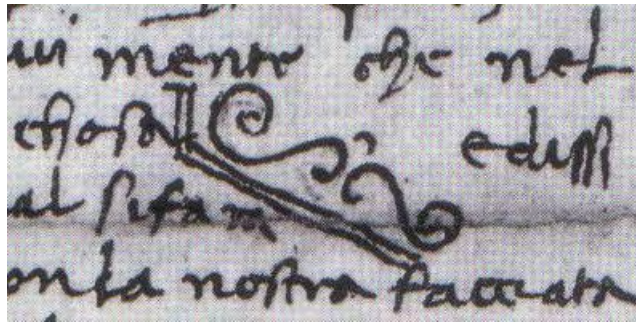 ui mente che nel
chosa edissi
al sifam
onla nostra facciata